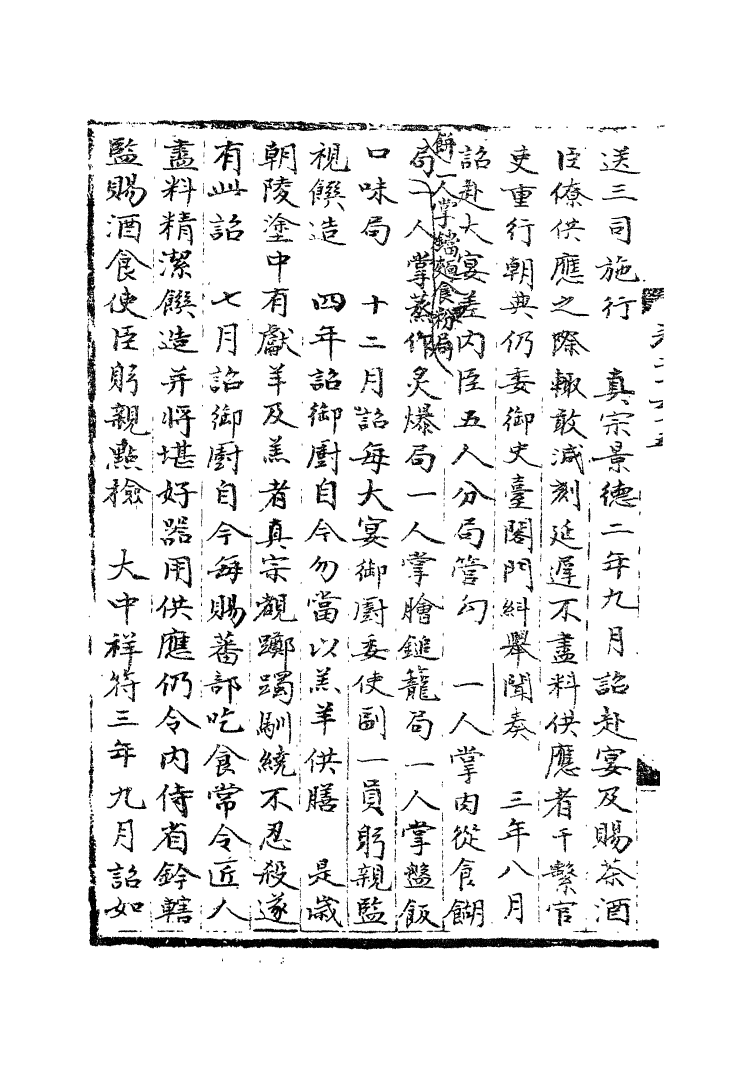 送三司施行　真宗景德二年九月詔赴宴及賜茶酒
臣僚供應之際輙敢減刻延遲不盡料供應者干繫官
吏重行朝典仍委御史臺閤門糾舉聞奏　三年八月
詔赴大宴差內臣五人分局管勾　一人掌肉從食餬
餅一人掌蒸麵食粉局
局一人掌蒸作炙爆局一人掌膾鎚籠局一人掌盤飯
口味局　十二月詔每大宴御厨委使副一員躬親監
視饌造　四年詔御厨自今勿當以羔羊供膳　是歲
朝陵塗中有獻羊及羔者真宗覩躑躅馴繞不忍殺遂
有此詔　七月詔御厨自今每賜蕃部吃食常令匠人
盡料精潔饌造并將堪好器用供應仍令內侍省鈐轄
監賜酒食使臣躬親點檢　大中祥符三年九月詔如